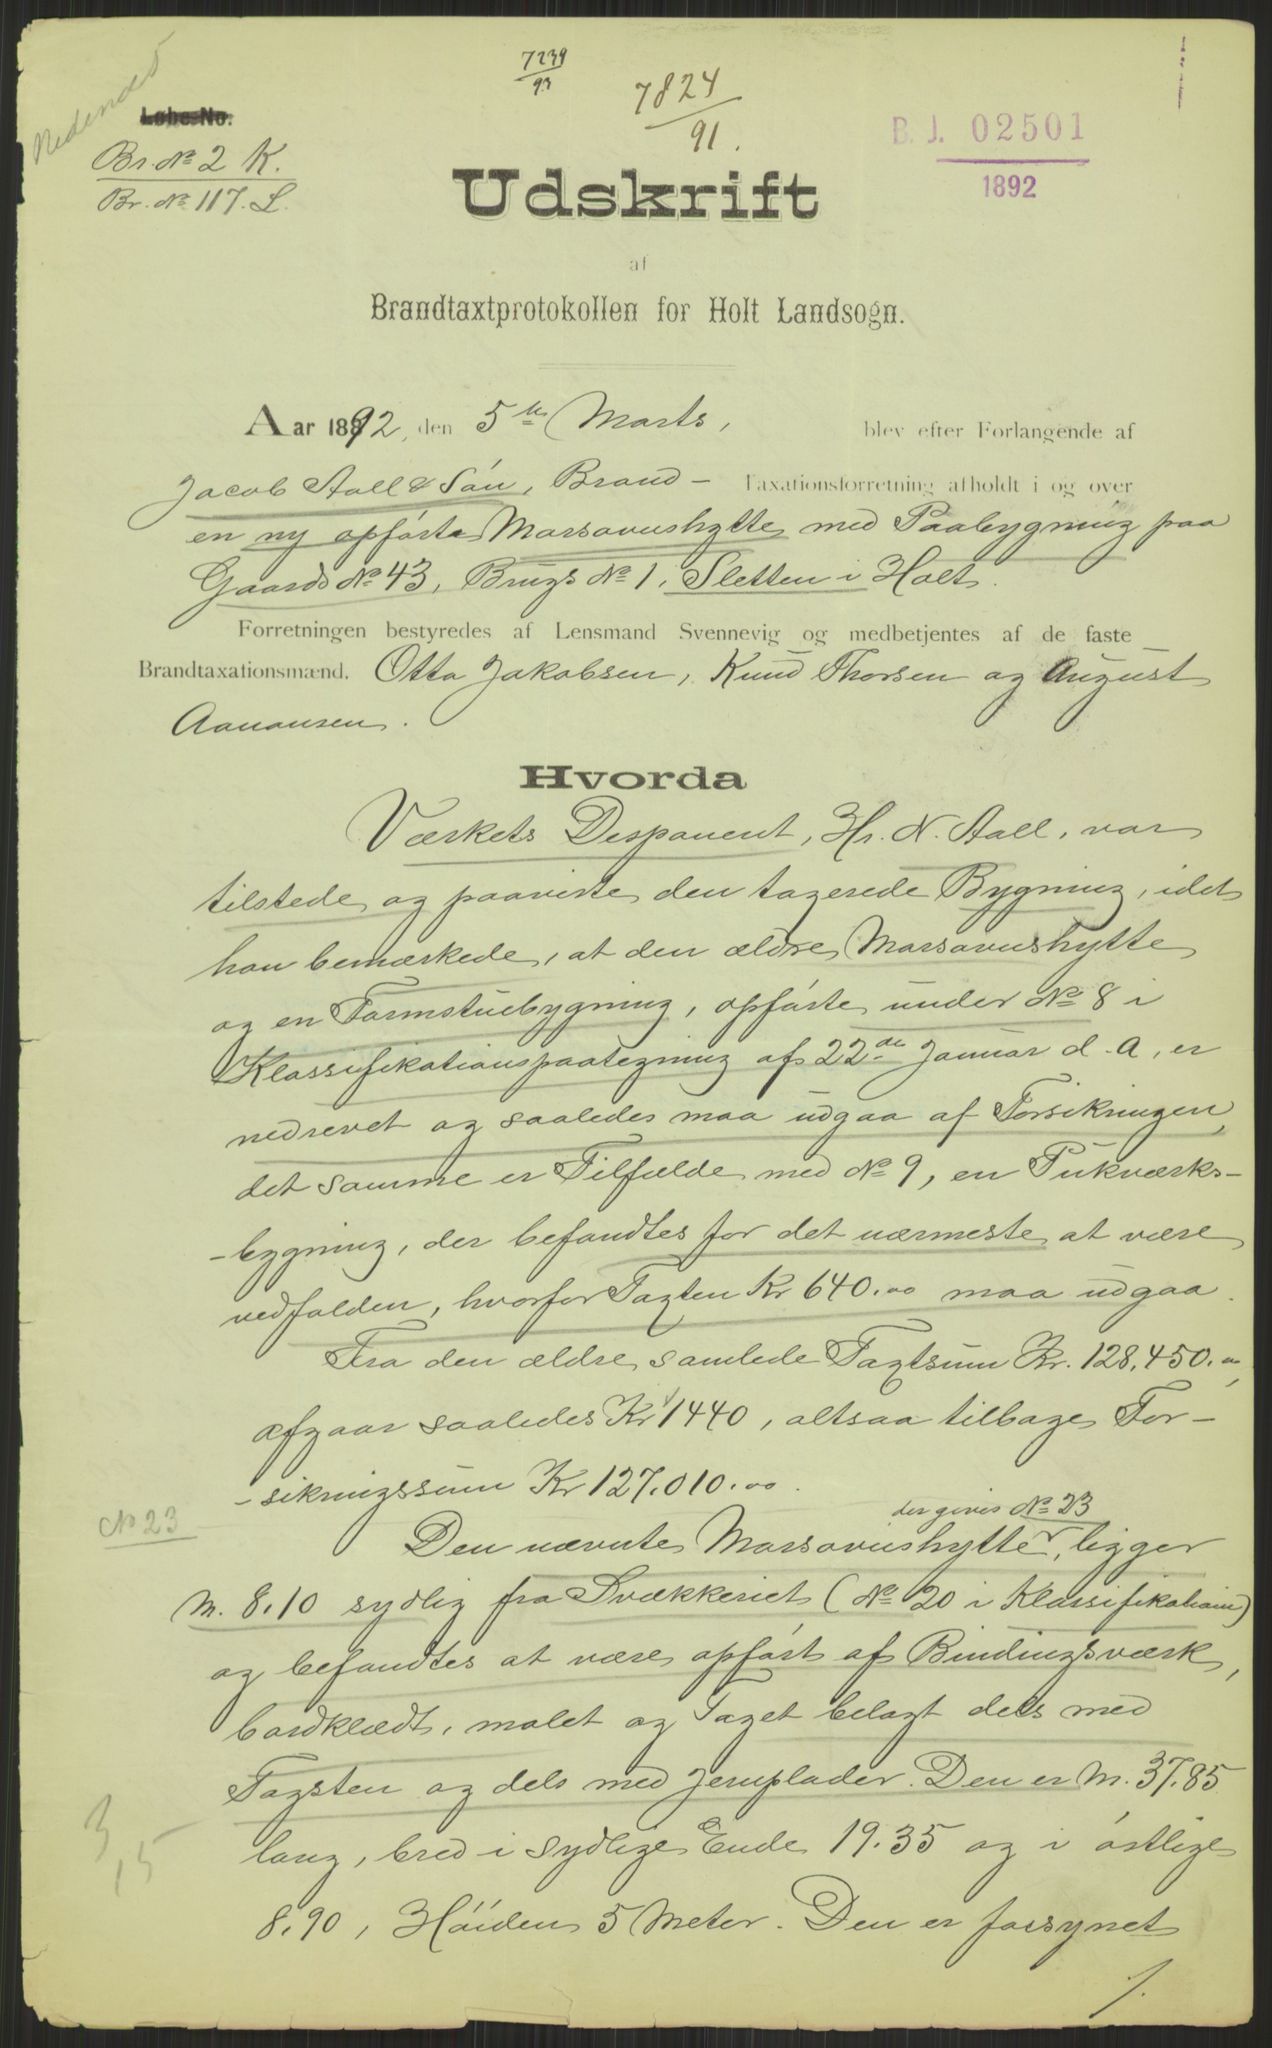 Nedenæs
7239
93
7824
91.
Løbe-No.
Br. No 2 K.
Br. No 117. L.
B. J. 02501
1892
Udskrift
af
Brandtaxtprotokollen for Holt Landsogn.
Aar 1892, den 5te Marts, blev efter Forlangende af
Jacob Aall & Søn, Brand- Taxationsforretning afholdt i og over
en ny opførte Masovnshytte med Paabygning paa
Gaards No 43, Brugs No 1, Sletten i Holt.
Forretningen bestyredes af Lensmand Svennevig og medbetjentes af de faste
Brandtaxationsmænd, Otto Jakobsen, Knud Thorsen og August
Aanonsen.
Hvorda
Værkets Disponent, Hr. N. Aall, var
tilstede og paaviste den taxerede Bygning, idet
han bemærkede, at den ældre Masovnshytte
og en Formstuebygning, opførte under No 8 i
Klassifikationspaategning af 22de Januar d. A, er
nedrevet og saaledes maa udgaa af Forsikringen,
det samme er Tilfælde med No 9, en Pukværks-
-bygning, der befandtes for det nærmeste at være
nedfalden, hvorfor Taxten Kr 640.00 maa udgaa.
Fra den ældre samlede Taxtsum Kr. 128.450.00,
afgaar saaledes Kr 1440, altsaa tilbage For-
-sikringssum Kr 127.010.00.
der gives No 23
No 23
Den nævnte Masovnshytte, ligger
M. 8.10 sydlig fra Svækkeriet (No 20 i Klassifikation)
og befandtes at være opført af Bindingsværk,
bordklædt, malet og Taget belagt dels med
Tagsten og dels med Jernplader. Den er M. 37.85
lang, bred i sydlige Ende 19.35 og i østlige
8.90, Høiden 5 Meter. Den er forsynet
3
15
./.